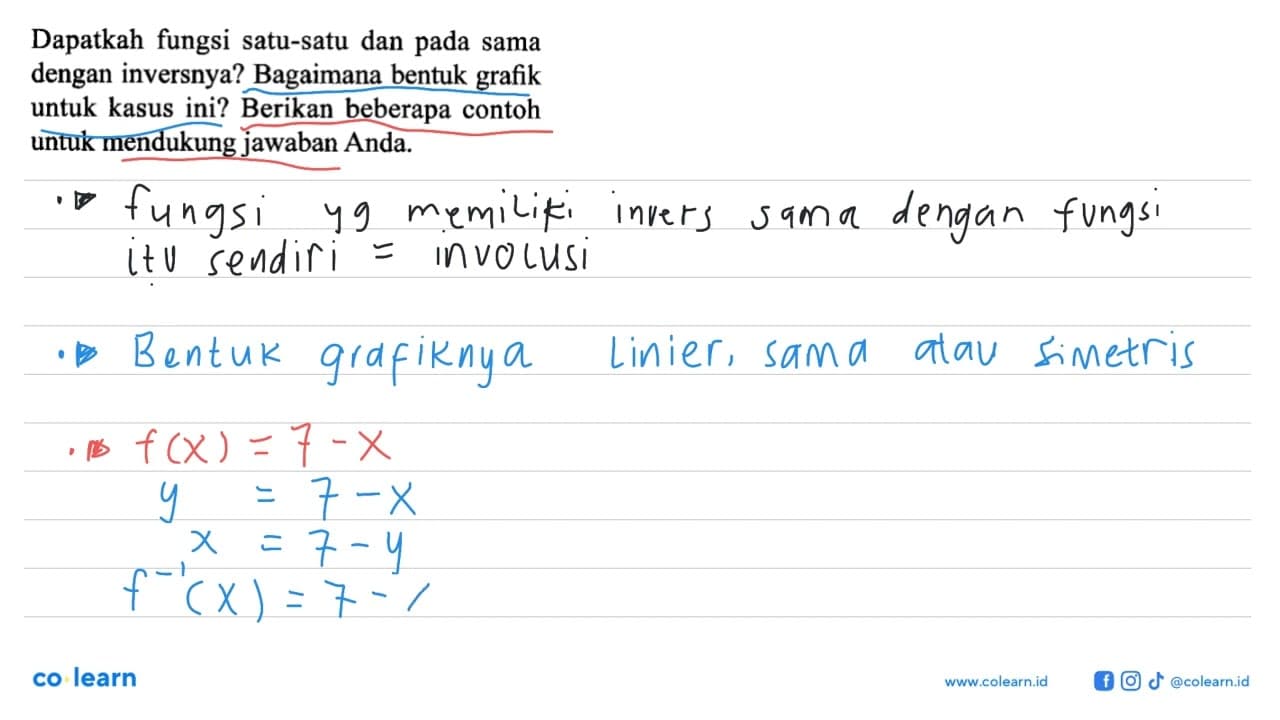 Dapatkah fungsi satu-satu dan pada sama
dengan inversnya? Bagaimana bentuk grafik
untuk kasus ini? Berikan beberapa contoh
untuk mendukung jawaban Anda.
fungsi yg memiliki invers sama dengan fungsi
itu sendiri = involusi
Bentuk grafiknya Linier, sama atau simetris
f(x) = 7 - x
y = 7 - x
x = 7 - y
f⁻¹(x) = 7 -
co learn
www.colearn.id
@colearn.id